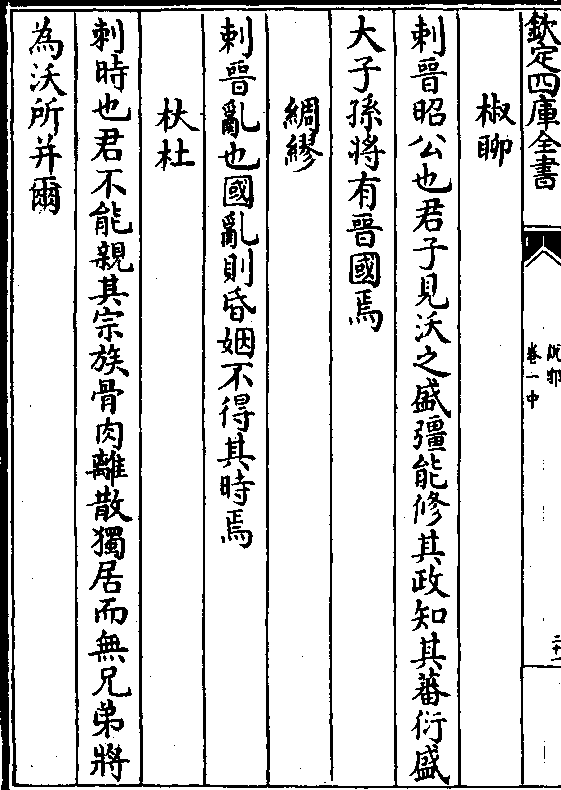 欽定四庫全書
說郛
卷一中
椒聊
刺晉昭公也君子見沃之盛彊能修其政知其蕃衍盛
大子孫將有晉國焉
綢繆
刺晉亂也國亂則昏姻不得其時焉
杕杜
刺時也君不能親其宗族骨肉離散獨居而無兄弟將
為沃所并爾